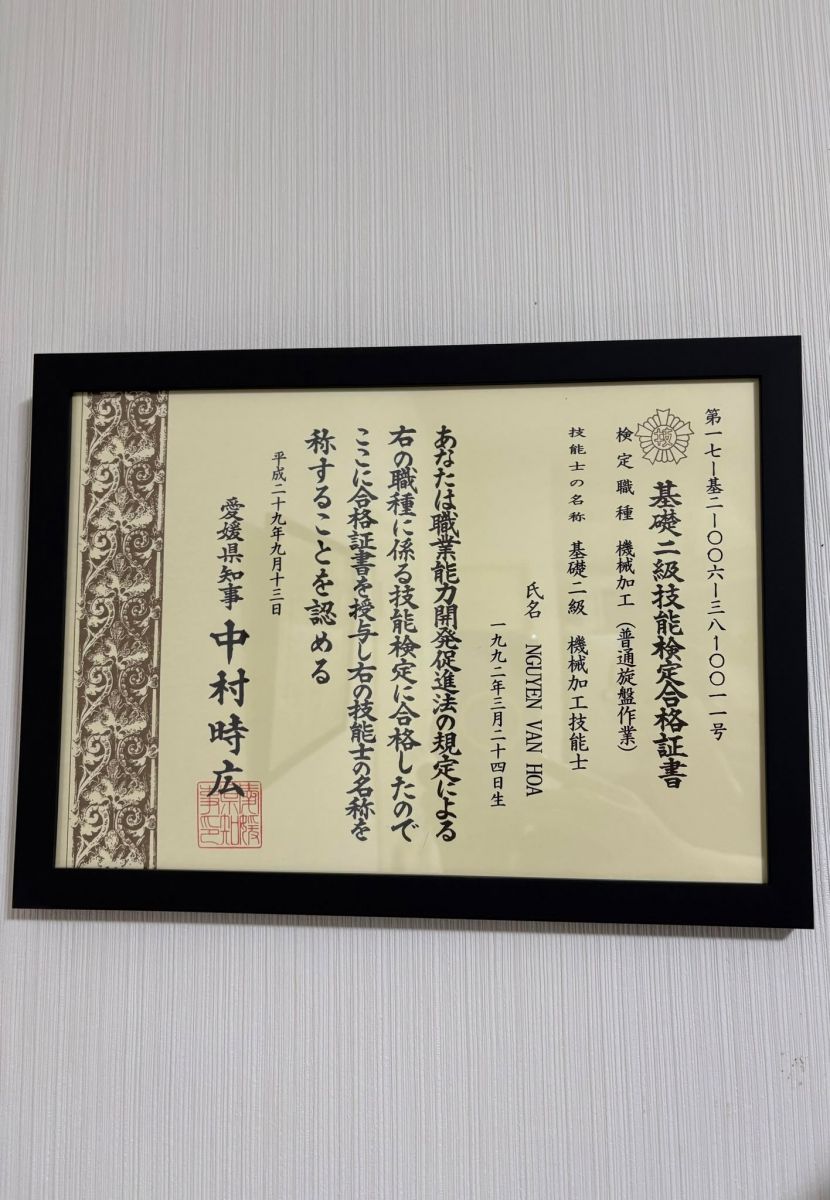 第一七ー基二ー〇〇六ー三八ー〇〇一一号
技
基礎二級技能検定合格証書
検定職種 機械加工(普通旋盤作業)
技能士の名称 基礎二級 機械加工技能士
氏名 NGUYEN VAN HOA
一九九二年三月二十四日生
あなたは職業能力開発促進法の規定による
右の職種に係る技能検定に合格したので
ここに合格証書を授与し右の技能士の名称を
称することを認める
平成二十九年九月十三日
愛媛県知事 中村時広
愛媛
県知
事印